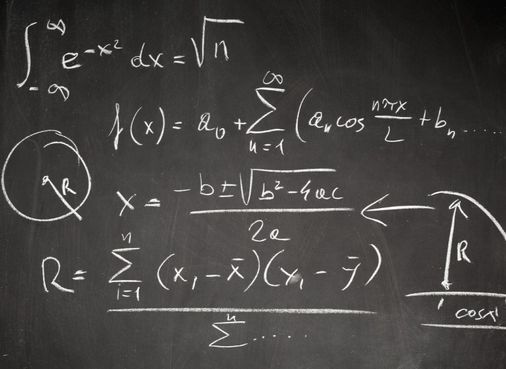 ∫_{-∞}^{∞} e^{-x²} dx = √n
f(x) = a₀ + ∑_{n=1}^{∞} (aₙ cos nπx/L + bₙ .....
R
x = (-b ± √(b² - 4ac)) / 2a
R
R = ∑_{i=1}^{n} (x₁ - x̄)(y₁ - ȳ) / ∑^{n} .....
cosx'